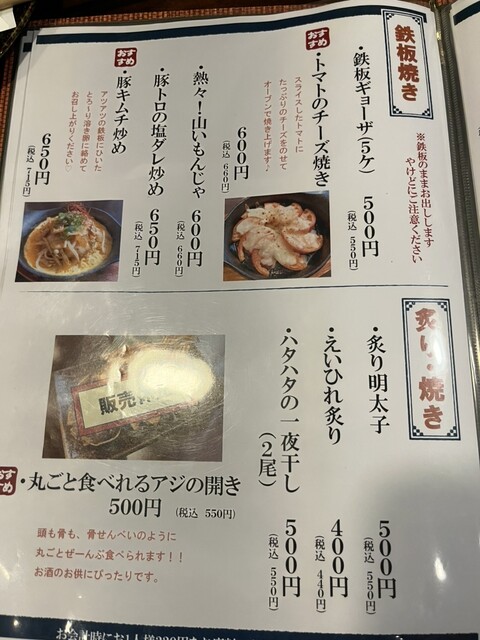 鉄板焼き
※鉄板のままお出しします
やけどにご注意ください
・鉄板ギョーザ(5ケ)
500円
(税込 550円)
おすすめ
・トマトのチーズ焼き
スライスしたトマトに
たっぷりのチーズをのせて
オーブンで焼き上げます♪
600円
(税込 660円)
・熱々!山いもんじゃ
600円
(税込 660円)
・豚トロの塩ダレ炒め
650円
(税込 715円)
おすすめ
・豚キムチ炒め
アツアツの鉄板にひいた
とろ〜り溶き卵に絡めて
お召し上がりください
650円
(税込 715円)
炙り・焼き
・炙り明太子
500円
(税込 550円)
・えいひれ炙り
400円
(税込 440円)
・ハタハタの一夜干し
(2尾)
500円
(税込 550円)
販売
おすすめ
・丸ごと食べれるアジの開き
500円 (税込 550円)
頭も骨も、骨せんべいのように
丸ごとぜーんぶ食べられます!!
お酒のお供にぴったりです。